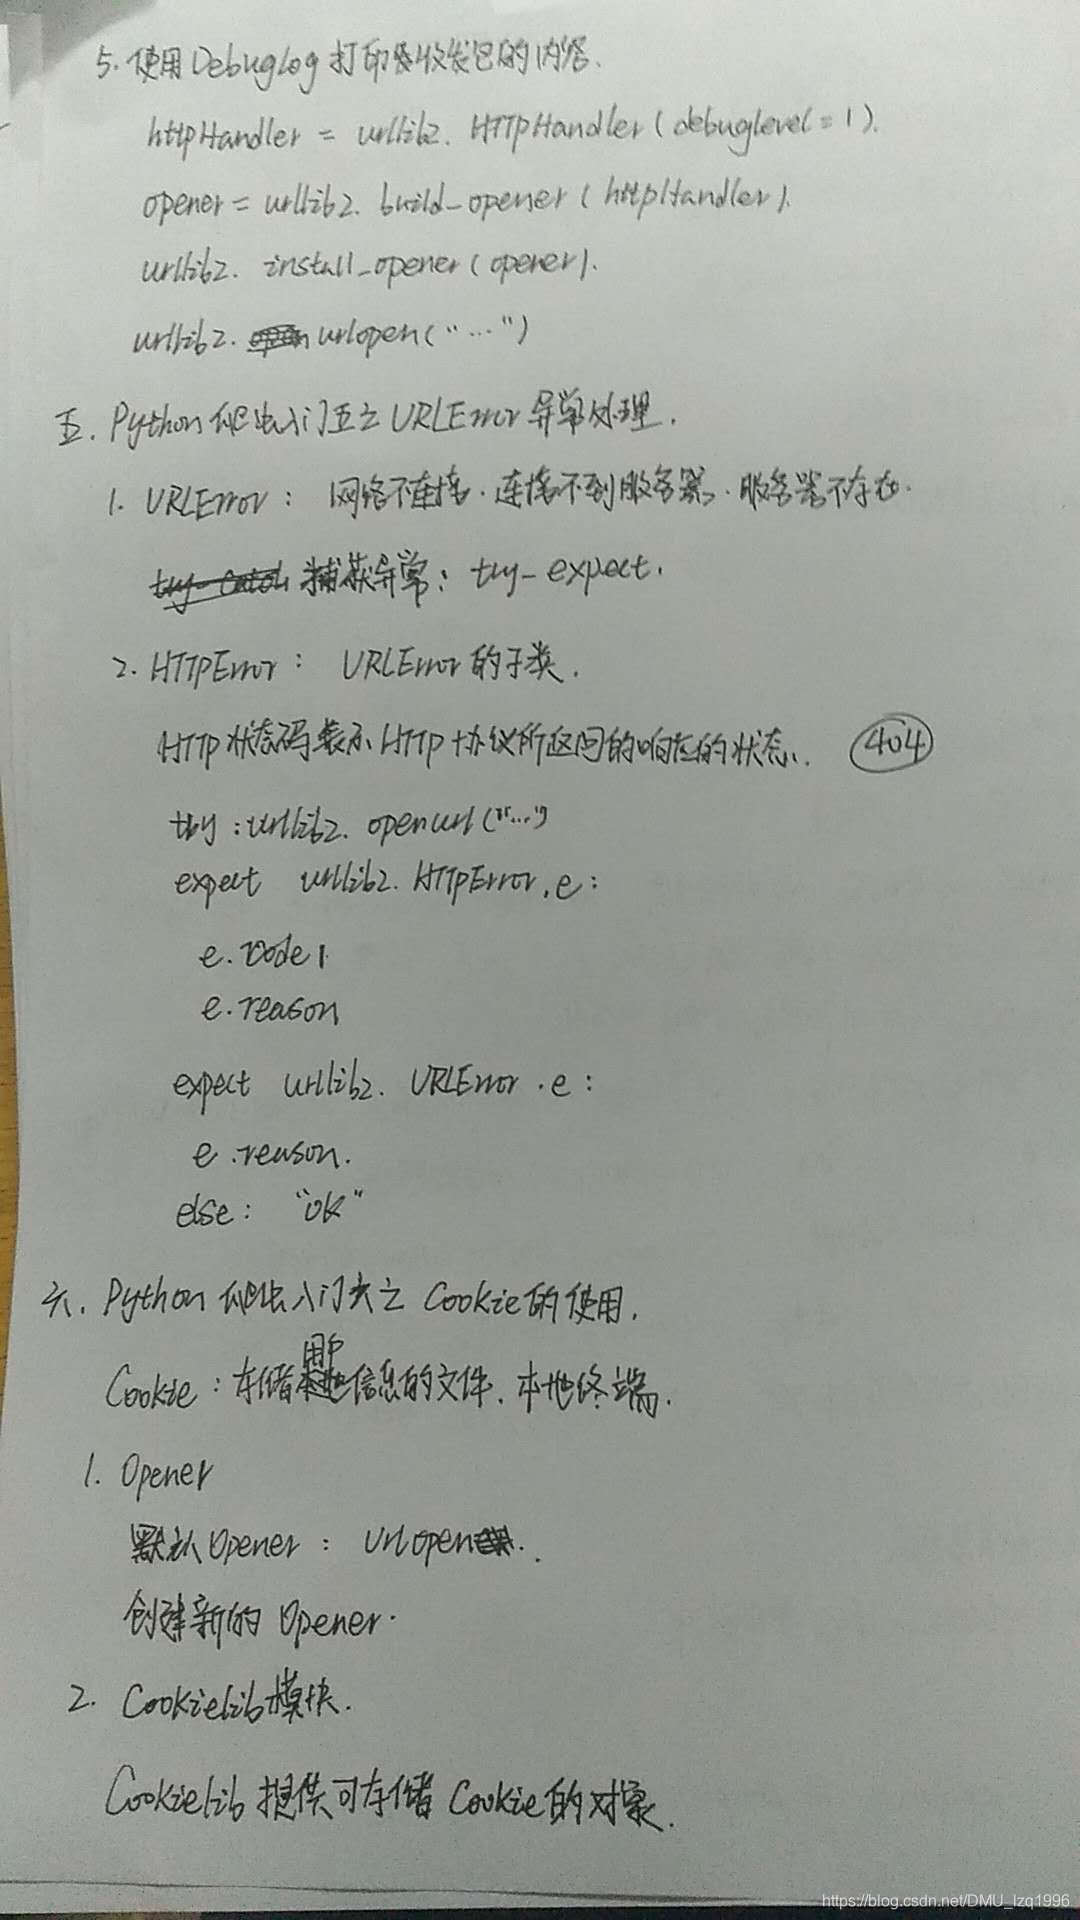 5. 使用DebugLog 打印收发包的内容.
httpHandler = urllib2. HTTPHandler (debuglevel = 1).
opener = urllib2. build_opener (httpHandler).
urllib2. install_opener (opener).
urllib2. urlopen("...")
五. Python 爬虫入门五之 URLError 异常处理.
1. URLError: 网络不连接. 连接不到服务器. 服务器不存在.
捕获异常: try-expect.
2. HTTPError: URLError的子类.
HTTP 状态码表示HTTP协议所返回的响应的状态. 404
try : urllib2. openurl ("...")
expect urllib2. HTTPError, e:
e. code
e. reason
expect urllib2. URLError . e:
e. reason.
else: "OK"
六. Python 爬虫入门六之 Cookie的使用.
Cookie: 存储用户信息的文件. 本地终端.
1. Opener
默认Opener: urlopen.
创建新的 Opener.
2. Cookielib模块.
Cookielib 提供可存储 Cookie的对象.
https://blog.csdn.net/DMU_lzq1996